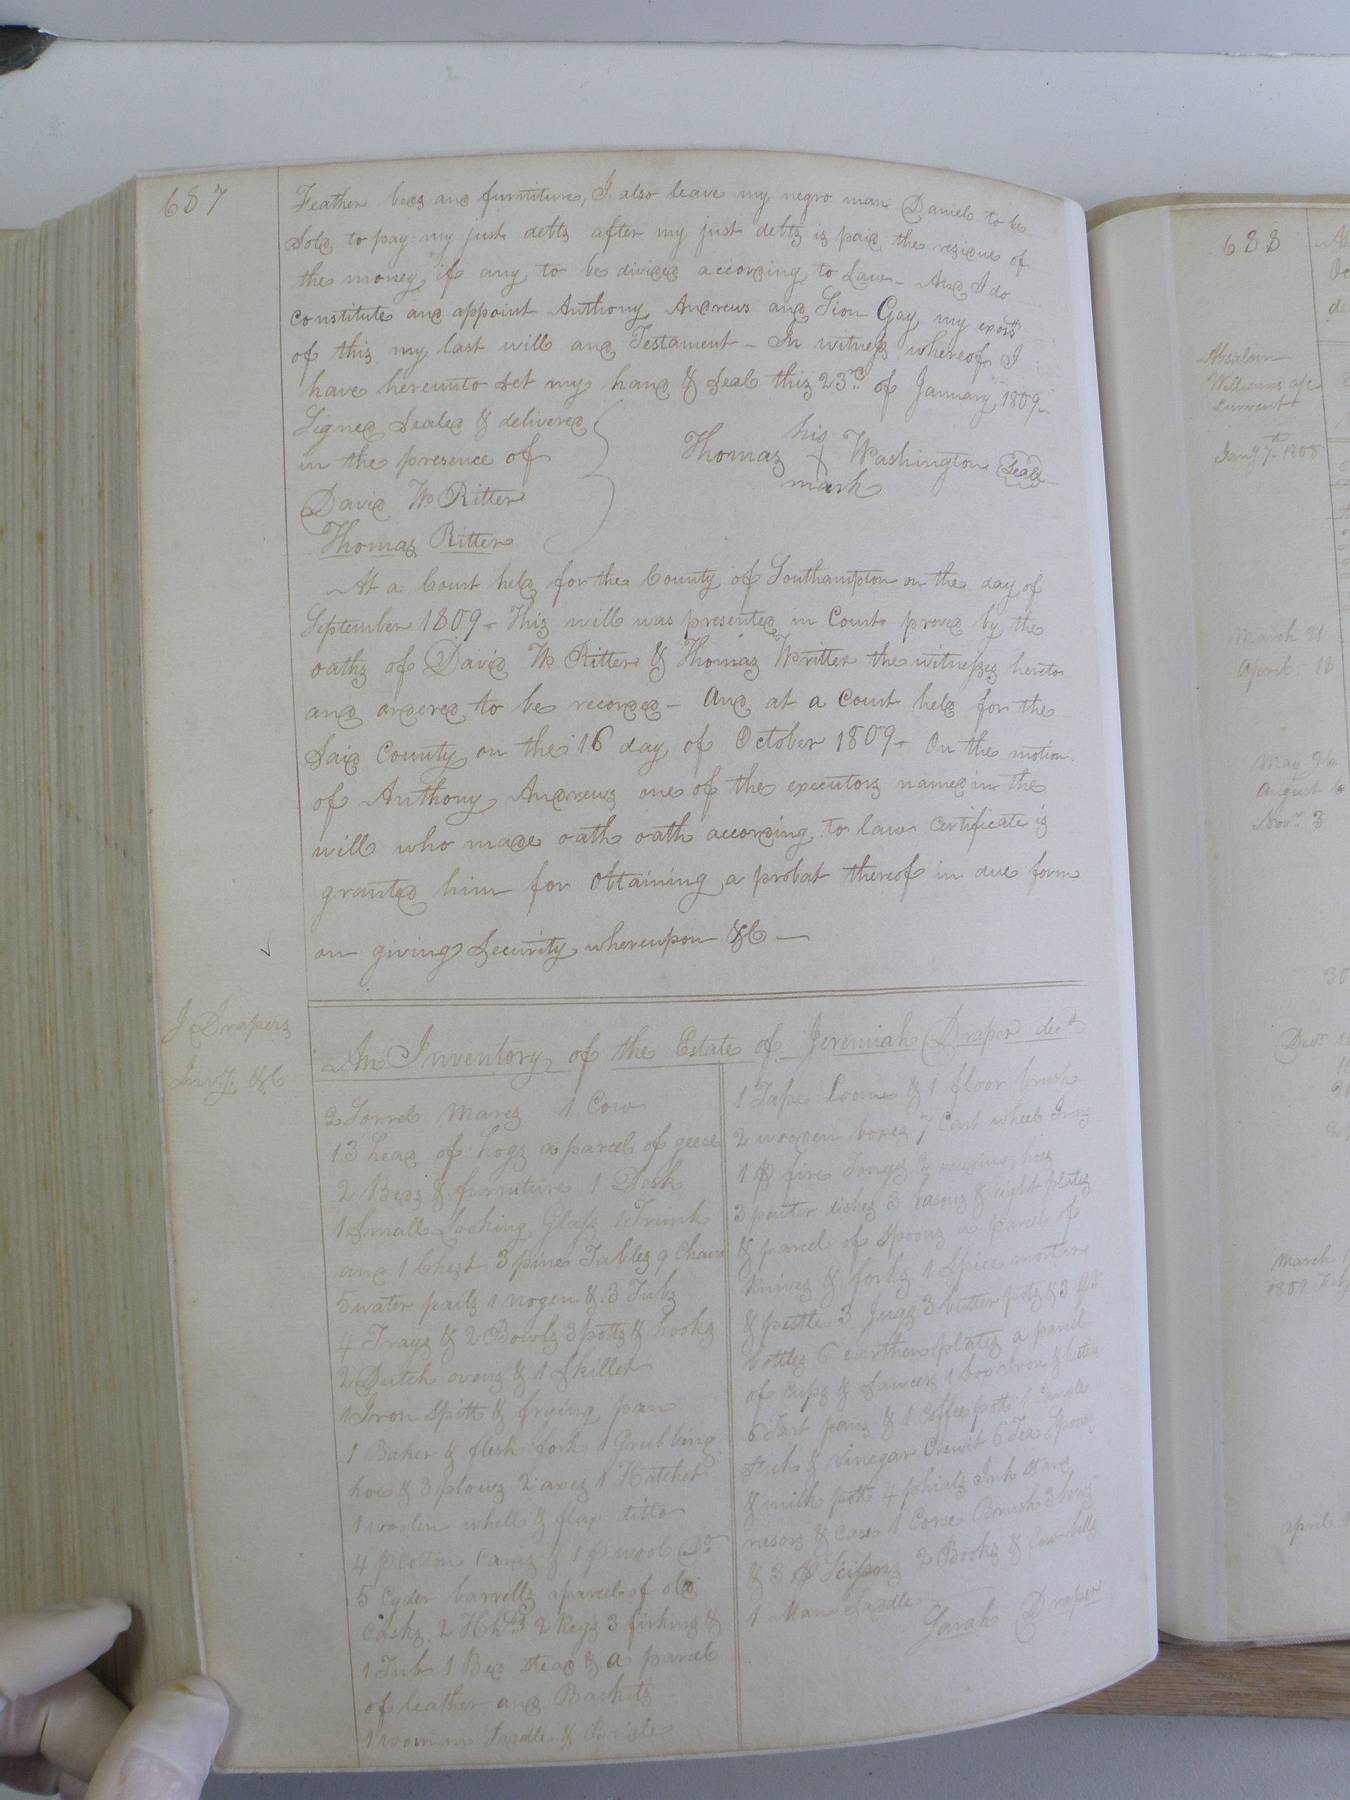 687
Feather beds and furniture, I also leave my negro man Daniel to be
Sold to pay my just debts after my just debts is paid the residue of
the money if any to be divided according to Law - And I do
constitute and appoint Anthony Andrews and Sion Gay my exors
of this my last will and Testament - In witness whereof I
have hereunto Set my hand & Seal this 23rd of January 1809 -
Signed Sealed & delivered
in the presence of
David W Ritter
Thomas Ritter
his
Thomas + Washington Seal
mark
At a Court held for the County of Southampton on the day of
September 1809 - This will was presented in Court proved by the
oaths of David W Ritter & Thomas Writter the witnesses hereto
and ordered to be recorded - And at a Court held for the
Said County on the 16 day of October 1809 - On the motion
of Anthony Andrews one of the executors named in the
will who made oath oath according to law certificate is
granted him for obtaining a probat thereof in due form
on giving Security whereupon &C —
J Drapers
Invy. &C
An Inventory of the Estate of Jeremiah Draper decd
2 Sorrel Mares 1 Cow
13 head of hogs a parcel of geese
2 Beds & furniture 1 Desk
1 Small Looking Glass 1 Trunk
and 1 Chest 3 pine Tables 9 Chairs
5 water pails 1 nogen & 3 Tubs
4 Trays & 2 Bowls 3 potts & hooks
2 Dutch ovens & 1 Skillet
1 Iron Spitt & frying pan
1 Baker & flesh fork 1 Grubbing
hoe & 3 plows 2 axes 1 Hatchet
1 woolen whell & flax ditto
4 p Cotton Cards & 1 p wool Do
5 Cyder barrells a parcel of old
Casks 2 Hhds 2 kegs 3 firkins &
1 Tub 1 Bed Stead & a parcel
of leather and Baskets
1 woman Saddle & Bridle
1 Tape Loome & 1 floor brush
2 wooden boxes 7 Cart wheel Irons
1 p fire Tongs 2 weeding hoes
3 peuter dishes 3 basons & eight plates
& parcel of Spoons a parcel of
knives & forks 1 Spice mortar
& pestle 3 Jugs 3 butter pots & 3
bottles 6 earthen plates a parcel
of Cups & Sawcers 1 box Iron &
6 Tart pans & 1 Coffee pott 1 Candle
stick & vinegar Crewit 6 Tea Spoons
& milk pott 4 phials Ink Stand
rasors & case 1 Corse Brush 3
& 3 p Scissors 2 Books & Cow bells
1 Man Saddle
Sarah Draper
688
Absalom
Williams a/c
Current
Jany 7th 1808
March 21
April 18
May 26
August 6
Novr 3
March
1809
April